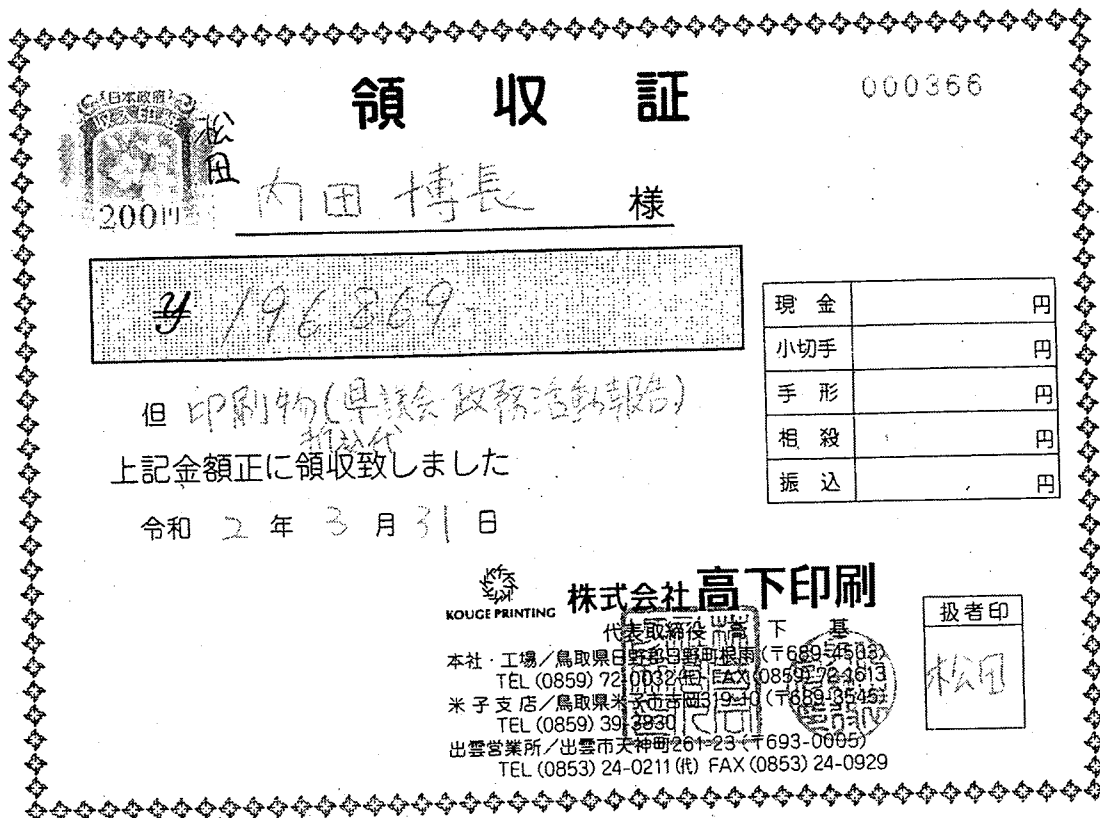 領収証
000366
日本政府
収入印紙
200円
松田
内田 博長 様
¥ 196869-
但 印刷物(県議会政務活動報告)
折込代
上記金額正に領収致しました
令和 2 年 3 月 31 日
現金 円
小切手 円
手形 円
相殺 円
振込 円
KOUGE PRINTING
株式会社 高下印刷
代表取締役 高下 基
本社・工場/鳥取県日野郡日野町根雨(〒689-4503)
TEL (0859) 72-0032(代) FAX (0859) 72-1613
米子支店/鳥取県米子市吉岡319-10 (〒689-3545)
TEL (0859) 39-3930
出雲営業所/出雲市天神町261-23 (〒693-0005)
TEL (0853) 24-0211(代) FAX (0853) 24-0929
扱者印
松田